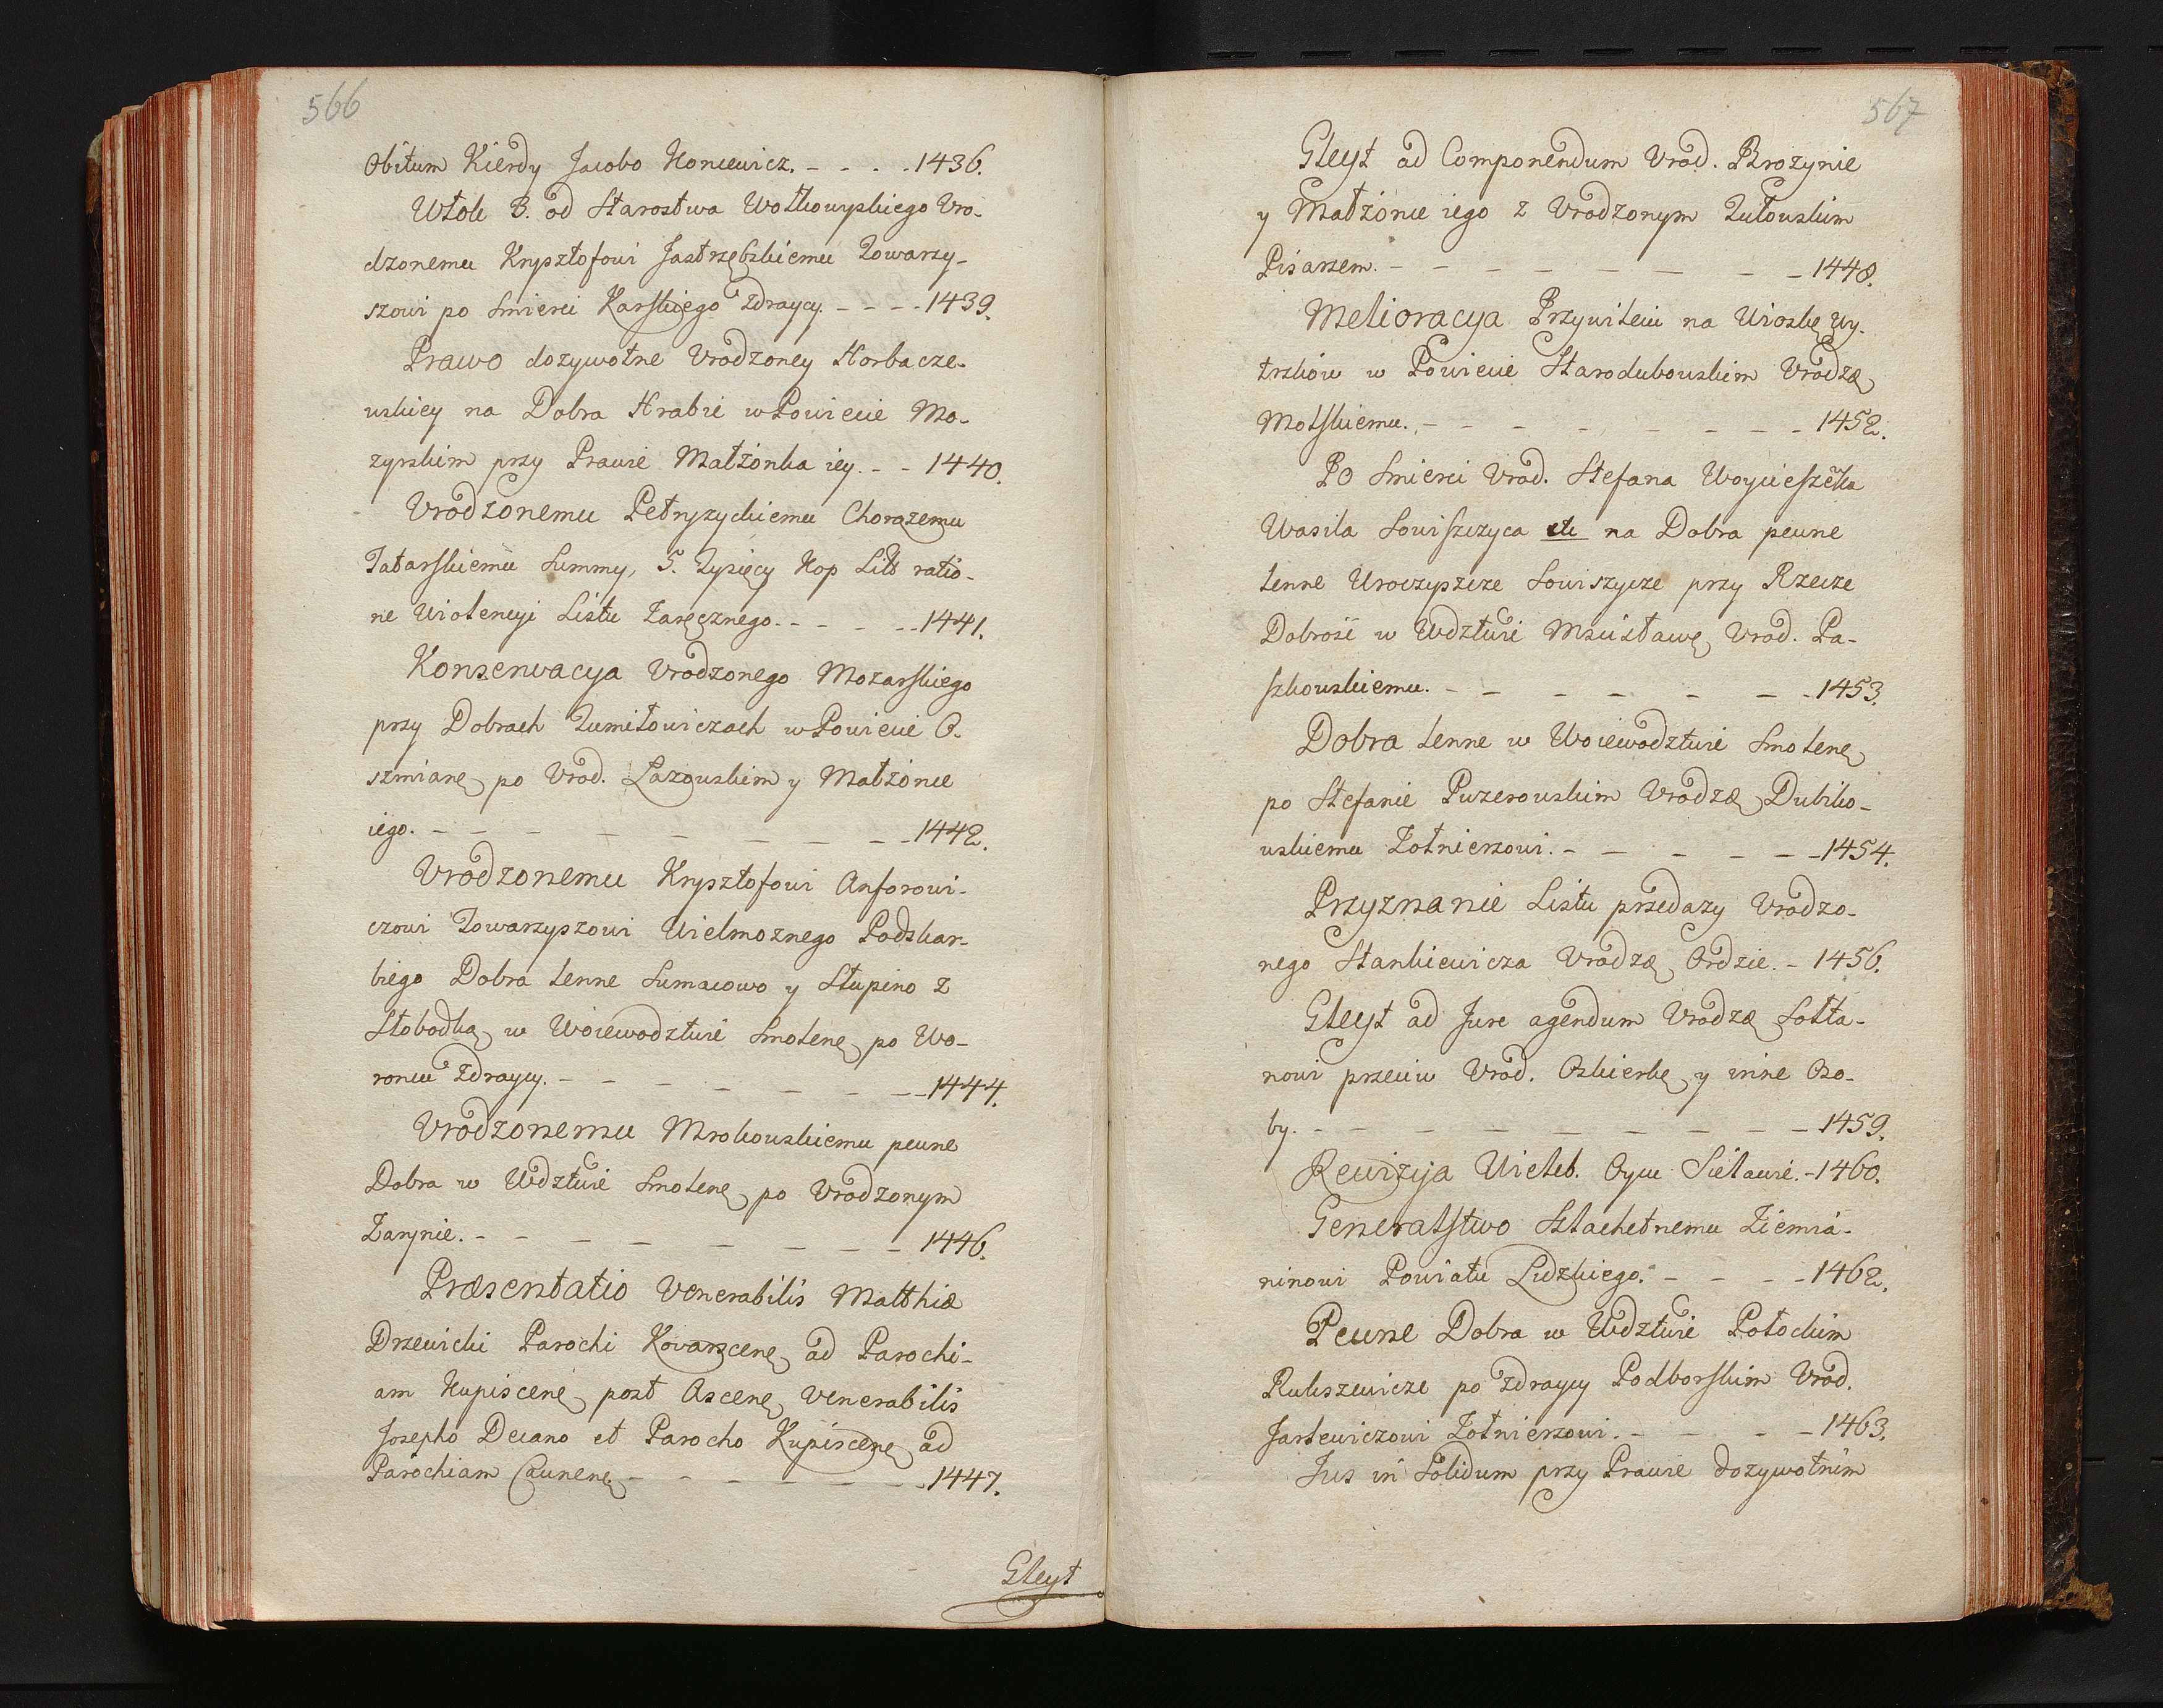 566
Obitum Kierdy Jacobo Koncewicz. - - - - 1436.
Wtok B. od Starostwa Wołkowyskiego Vro-
dzonemu Krysztofowi Jastrzębskiemu Towarzy-
szowi po Smierci Karskiego Zdraycy. - - - - 1439.
Prawo dozywotne Vrodzoney Horbacze-
wskiey na Dobra Hrabie w Powiecie Mo-
zyrskim przy Prawie Małżonka iey. - - 1440.
Vrodzonemu Petryzyckiemu Chorązemu
Tatarskiemu Summy, 5. Tysięcy Kop Litt ratio-
ne Wiolencyi Listu Zaręcznego. - - - - - 1441.
Konserwacya Vrodzonego Mozarskiego
przy Dobrach Tumiłowiczach w Powiecie O-
szmianę po Vrod. Łazowskim y Małżonce
iego. - - - - - - - - - 1442.
Vrodzonemu Krysztofowi Anforowi-
czowi Towarzyszowi Wielmoznego Podskar-
biego Dobra lenne Sumacowo y Stupino z
Słobodką w Woiewodztwie Smolenę po Wo-
roncu Zdraycy. - - - - - - - - 1444.
Vrodzonemu Mrokowskiemu pewne
Dobra w Wdztwie Smolenę po Vrodzonym
Zarynie. - - - - - - - - - 1446.
Præsentatio Venerabilis Matthiæ
Drzewicki Parochi Kowarscenę ad Parochi-
am Kupiscenę post Ascenę Venerabilis
Josepho Decano et Parocho Kupiscenę ad
Parochiam Caunenę - - - - - - - 1447.
Gleyt
567
Gleyt ad Componendum Vrod. Brozynie
y Małżonce iego z Vrodzonym Zutowskim
Pisarzem. - - - - - - - - - 1448.
Melioracya Przywileiu na Wioskę Wy-
trzkow w Powiecie Starodubowskim Vrodzæ
Motskiemu. - - - - - - - - - 1452.
Po Smierci Vrod. Stefana Woycieszka
Wasila Sowiszczyca etc na Dobra pewne
lenne Uroczyszcze Sowiszycze przy Rzecze
Dobrosi w Wdztwie Mscisławę Vrod. Pa-
szkowskiemu. - - - - - - - 1453.
Dobra lenne w Woiewodztwie Smolenę
po Stefanie Puzerowskim Vrodzæ Dubiko-
wskiemu Zołnierzowi. - - - - - - 1454.
Przyznanie Listu przedazy Vrodzo-
nego Stankiewicza Vrodzæ Ordzie. - 1456.
Gleyt ad Jure agendum Vrodzæ Sołta-
nowi przeciw Vrod. Oskierkę y inne Oso-
by. - - - - - - - - - - 1459.
Rewizyja Witeb. Oycu Sielawie. - 1460.
Generalstwo Szlachetnemu Ziemia-
ninowi Powiatu Lidzkiego. - - - - 1462.
Pewne Dobra w Wdztwie Połockim
Rukszewicze po Zdraycy Podborskim Vrod.
Jarlewiczowi Zołnierzowi. - - - - - 1463.
Jus in Solidum przy Prawie dozywotnim